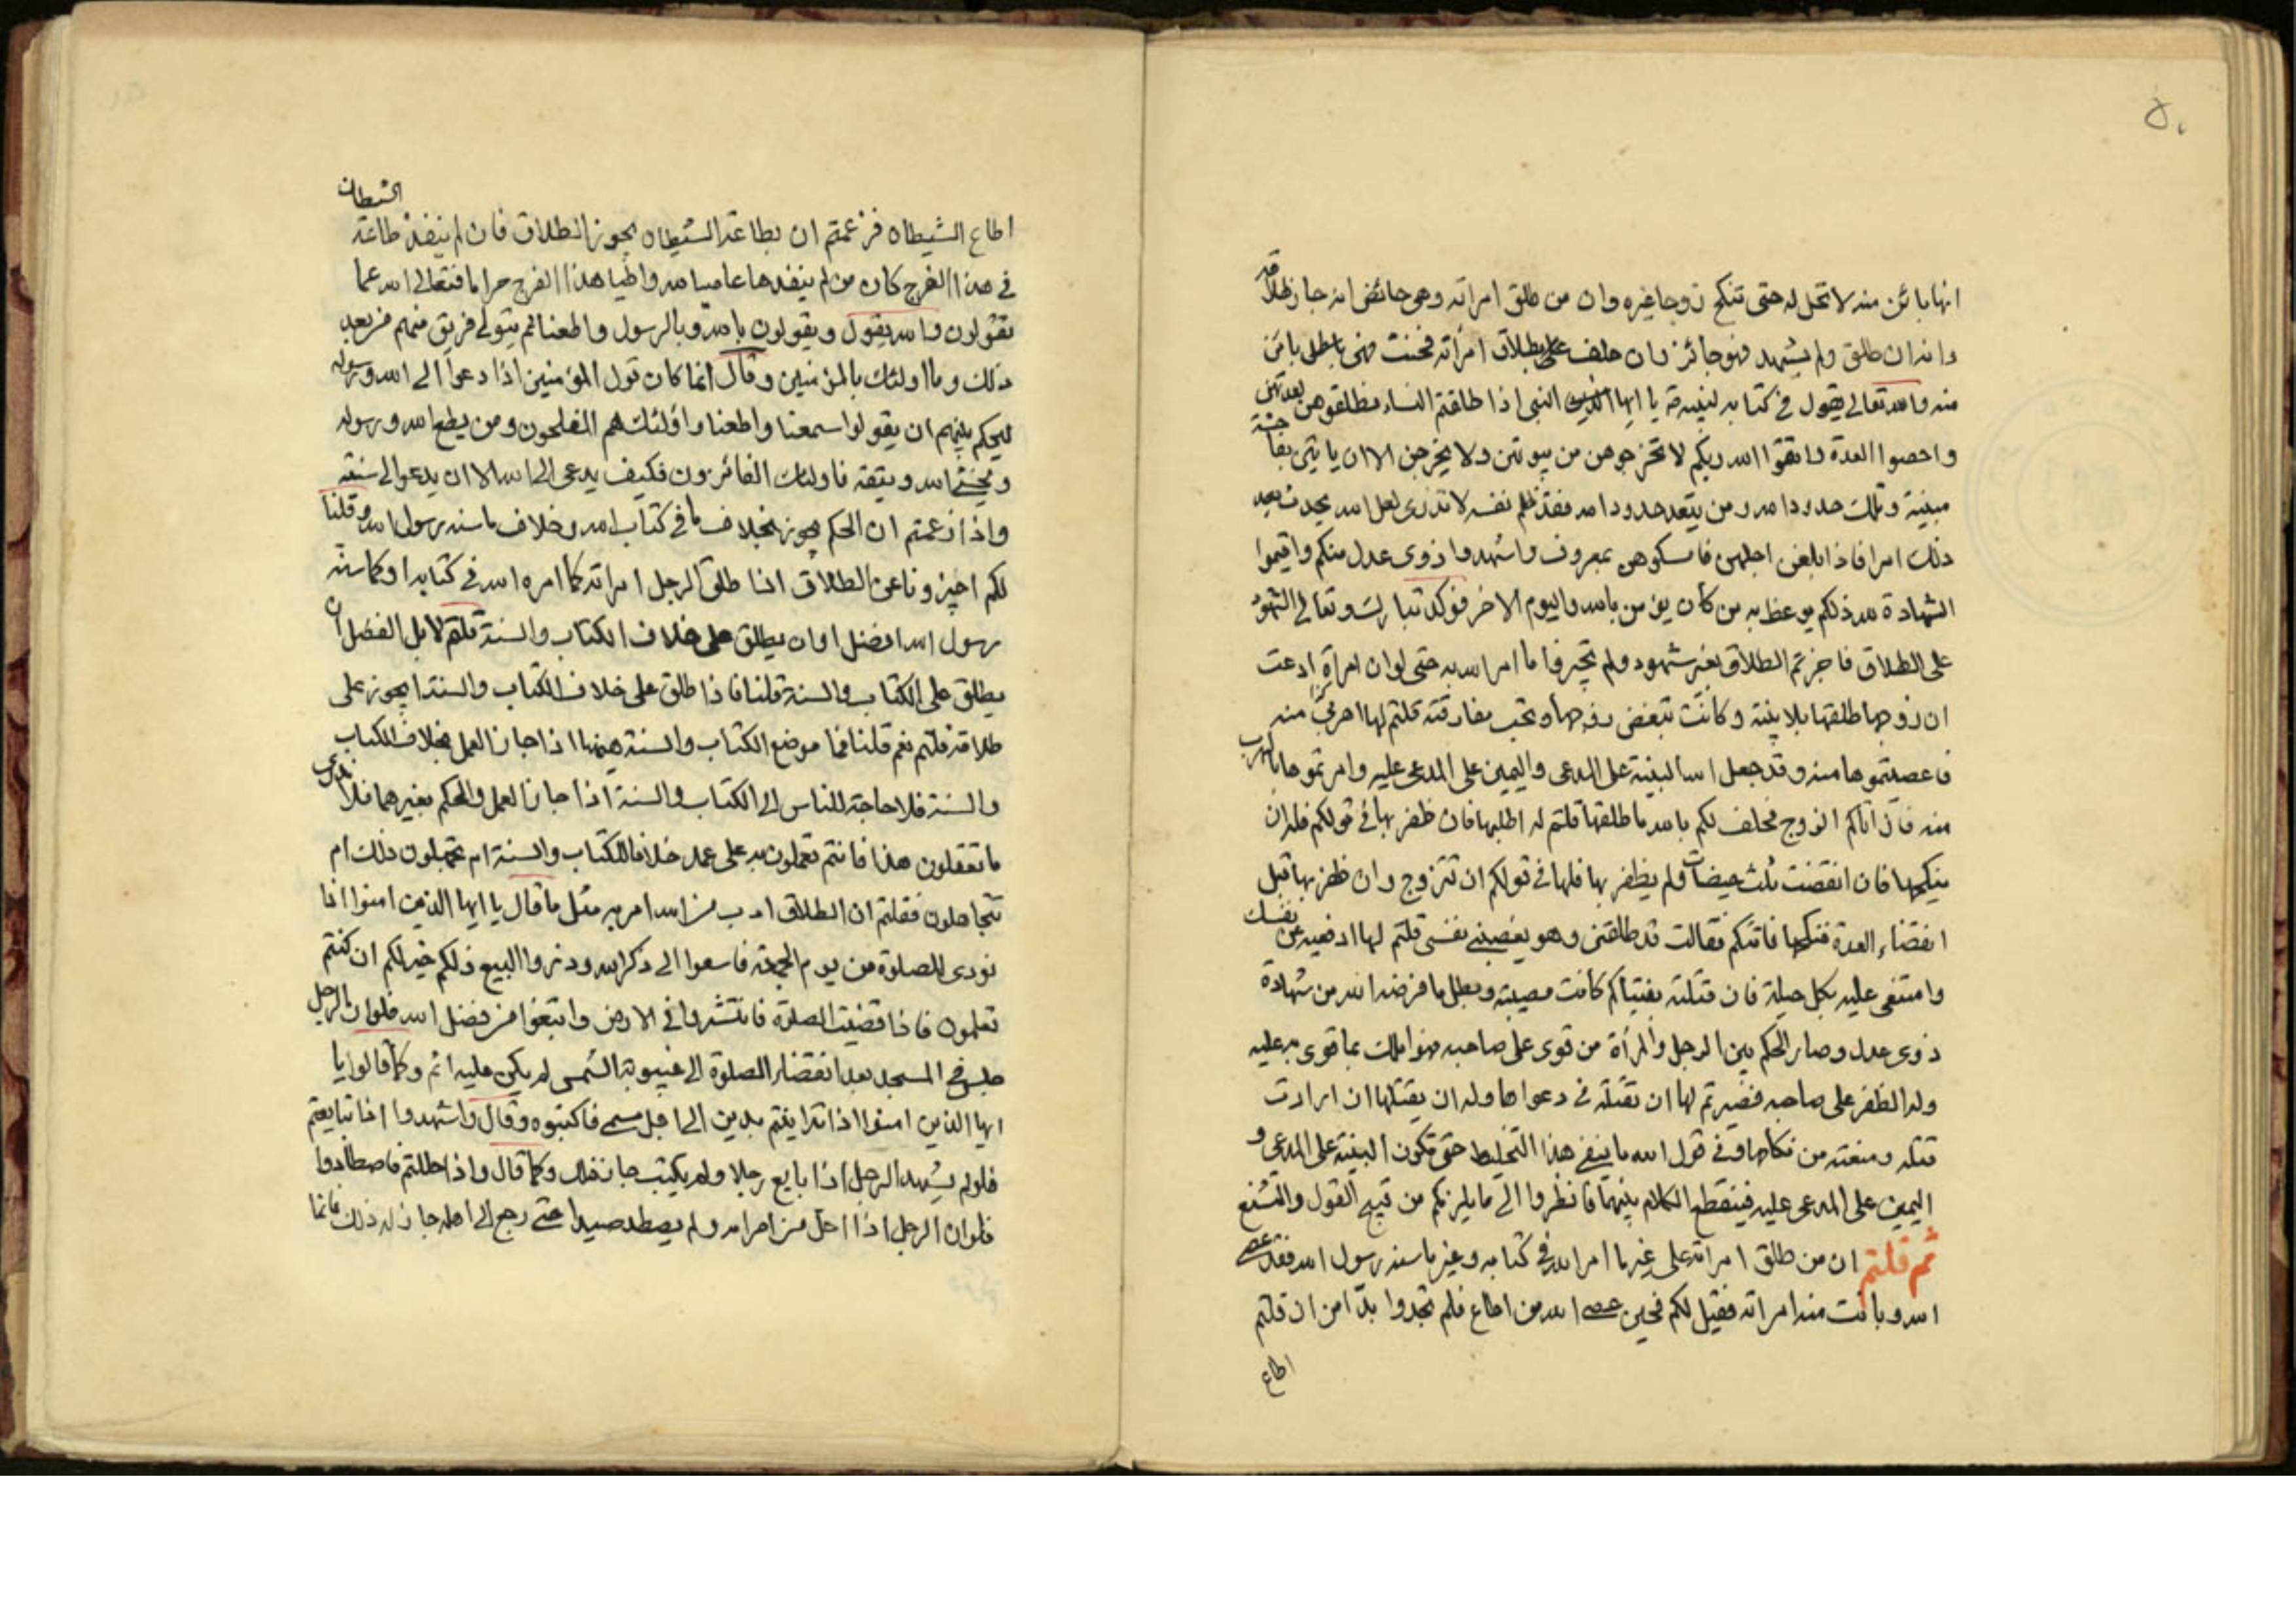 ٥٠
انها بائن منه لا تحل له حتى تنكح زوجا غيره وان من طلق امراته وهي حائض انه جاز طلاقه
وانه ان طلق ولم يشهد فهو جائز وان حلف بطلاق امرأته فحنث فهى باطل بائن
منه والله تعالى يقول في كتابه لنبيه يا ايها النبي اذا طلقتم النساء فطلقوهن لعدتهن
واحصوا العدة واتقوا الله ربكم لا تخرجوهن من بيوتهن ولا يخرجن الا ان ياتين بفاحشة
مبينة وتلك حدود الله ومن يتعد حدود الله فقد ظلم نفسه لا تدرى لعل الله يحدث بعد
ذلك امرا فاذا بلغن اجلهن فامسكوهن بمعروف واشهدوا ذوى عدل منكم واقيموا
الشهادة لله ذلكم يوعظ به من كان يؤمن بالله واليوم الاخر فوكد تبارك وتعالى الشهود
على الطلاق فاجزتم الطلاق بغير شهود ولم تجيزوا ما امر الله به حتى لو ان امرأة ادعت
ان زوجها طلقها بلا بينة وكانت تبغض زوجها وتحب مفارقته قلتم لها اهربي منه
فاعصيتموها منه وقد جعل الله البينة على المدعى واليمين على المدعى عليه وامرتموها بالهرب
منه فان اتاكم الزوج فحلف لكم بالله ما طلقها قلتم له اطلبها فان ظفر بها في قولكم فله ان
ينكحها فان انقضت ثلث حيضات ولم يظفر بها فلها في قولكم ان تتزوج وان ظفر بها قبل
انقضاء العدة فنكحها فاتتكم فقالت قد طلقني وهو يغصبني نفسى قلتم لها ادفعيه عن نفسك
وامتنعى عليه بكل حيلة فان قتلته بفتياكم كانت مصيبة وبطل ما فرضه الله من شهادة
ذوى عدل وصار الحكم بين الرجل والمرأة من قوى على صاحبه فهو املك بما قوى به عليه
وله الظفر على صاحبه فصيرتم لها ان تقتله في دعواها وله ان يقتلها ان ارادت
قتله ومنعته من نكاحها وفي قول الله ما ينفى هذا التخليط حتى تكون البينة على المدعى و
اليمين على المدعى عليه فينقطع الكلام بينهما فانظروا الى ما يلزمكم من قبيح القول والتشنع
ثم قلتم ان من طلق امراته على غير ما امر الله في كتابه وغير ما سنه رسول الله فقد عصى
الله وبانت منه امراته فقيل لكم فحين عصى الله من اطاع فلم تجدوا بدا من ان قلتم
اطاع
اطاع الشيطان فزعمتم ان بطاعة الشيطان يجوز الطلاق فان لم ينفذ طاعة الشيطان
في هذا الفرج كان من لم ينفذها عاصيا لله واطيا هذا الفرج حراما فتعالى الله عما
يقولون والله يقول ويقولون بالله وبالرسول واطعنا ثم يتولى فريق منهم من بعد
ذلك وما اولئك بالمؤمنين وقال انما كان قول المؤمنين اذا دعوا الى الله ورسوله
ليحكم بينهم ان يقولوا سمعنا واطعنا واولئك هم المفلحون ومن يطع الله ورسوله
ويخشى الله ويتقه فاولئك الفائزون فكيف يدعى الى الله الا ان يدعو الى سنته
واذا زعمتم ان الحكم يجوز بخلاف ما في كتاب الله وخلاف ما سنه رسول الله وقلنا
لكم اخبرونا عن الطلاق اذا طلق الرجل امراته كما امره الله في كتابه او كما سنه
رسول الله افضل او ان يطلق على خلاف الكتاب والسنة قلتم لا بل الفضل ان
يطلق على الكتاب والسنة قلنا فاذا طلق على خلاف الكتاب والسنة ايجوز على
طلاقه قلتم نعم قلنا فما موضع الكتاب والسنة هيهنا اذا جاز العمل بخلاف الكتاب
والسنة فلا حاجة للناس الى الكتاب والسنة اذا جاز العمل والحكم بغيرهما فلا ندرى
ما تعقلون هذا فانتم تعملون به على عمد خلافا للكتاب والسنة ام تجهلون ذلك ام
تتجاهلون فقلتم ان الطلاق ادب من الله امر به مثل ما قال يا ايها الذين امنوا اذا
نودى للصلوة من يوم الجمعة فاسعوا الى ذكر الله وذروا البيع ذلكم خير لكم ان كنتم
تعلمون فاذا قضيت الصلوة فانتشروا في الارض وابتغوا من فضل الله فلو ان الرجل
جلس في المسجد بعد انقضاء الصلوة الى غيبوبة الشمس لم يكن عليه اثم وكما قالوا يا
ايها الذين امنوا اذا تداينتم بدين الى اجل مسمى فاكتبوه وقال واشهدوا اذا تبايعتم
فلو لم يشهد الرجل اذا بايع رجلا ولم يكتب جاز ذلك وكما قال واذا حللتم فاصطادوا
فلو ان الرجل اذا احل من احرامه ولم يصطد صيدا حتى رجع الى اهله جاز له ذلك فانما